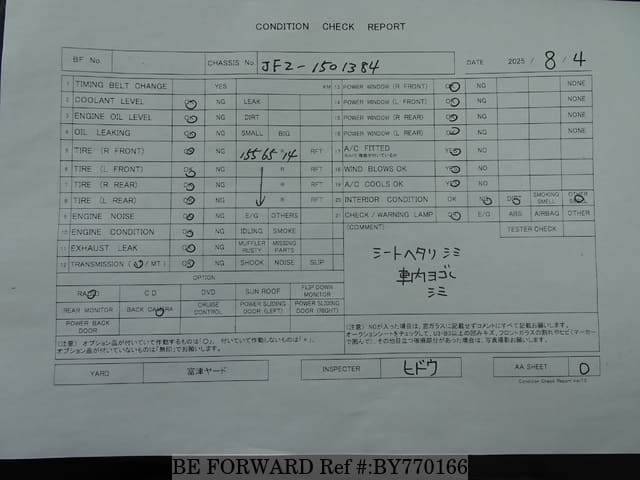 CONDITION CHECK REPORT
BF No. CHASSIS No. JF2-1501384 DATE 2025 / 8 / 4
1 TIMING BELT CHANGE YES KM 13 POWER WINDOW (R FRONT) OK NG NONE
2 COOLANT LEVEL OK NG LEAK 14 POWER WINDOW (L FRONT) OK NG NONE
3 ENGINE OIL LEVEL OK NG DIRT 15 POWER WINDOW (R REAR) OK NG NONE
4 OIL LEAKING OK NG SMALL BIG 16 POWER WINDOW (L REAR) OK NG NONE
5 TIRE (R FRONT) OK NG 155 65 R 14 RFT 17 A/C FITTED YES NO
6 TIRE (L FRONT) OK NG R RFT 18 WIND BLOWS OK YES NO
7 TIRE (R REAR) OK NG R RFT 19 A/C COOLS OK YES NO
8 TIRE (L REAR) OK NG R RFT 20 INTERIOR CONDITION OK NG DIRT SMOKING SMELL OTHER SMELL
9 ENGINE NOISE OK NG E/G OTHERS 21 CHECK / WARNING LAMP OK E/G ABS AIRBAG OTHER
10 ENGINE CONDITION OK NG IDLING SMOKE (COMMENT) TESTER CHECK
11 EXHAUST LEAK OK NG MUFFLER RUSTY MISSING PARTS
12 TRANSMISSION (AT / MT) OK NG SHOCK NOISE SLIP
シートヘタリ シミ
車内ヨゴレ
シミ
OPTION
RADIO CD DVD SUN ROOF FLIP DOWN MONITOR
REAR MONITOR BACK CAMERA CRUISE CONTROL POWER SLIDING DOOR (LEFT) POWER SLIDING DOOR (RIGHT)
POWER BACK DOOR
(注意) オプション品が付いていて作動するものは「○」、付いていて作動しないものは「×」、
オプション品が付いていないものは「無印」でお願いします。
(注意) NGが入った項目は、窓ガラスに記載せずコメントにすべて記載お願いします。
オークションシートをチェックして、U3・B3以上の凹みキズ、フロントガラスの割れやヒビ(マーカー
で囲んで)、その他目立つ破損部分があった場合は、写真撮影お願いします。
YARD 富津ヤード INSPECTER ヒドウ AA SHEET 0
Condition Check Report
BE FORWARD Ref #:BY770166